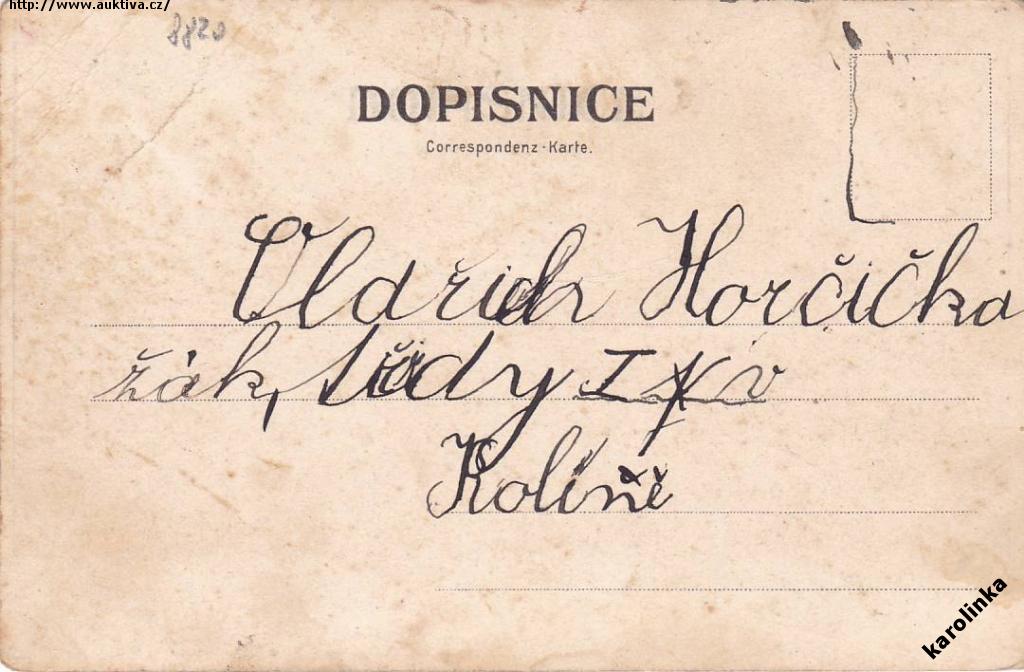 http://www.auktiva.cz/
8820
DOPISNICE
Correspondenz-Karte.
Oldřich Horčička
žák, třídy I v
Kolíně
karolinka